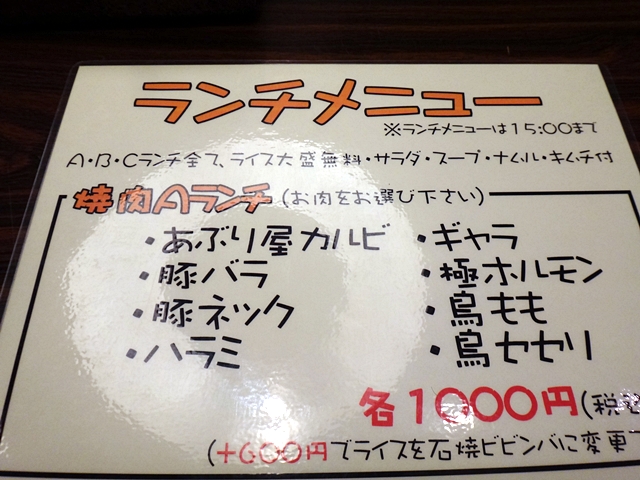 ランチメニュー
※ランチメニューは15:00まで
A・B・Cランチ全て、ライス大盛無料・サラダ・スープ・ナムル・キムチ付
焼肉Aランチ(お肉をお選び下さい)
・あぶり屋カルビ ・ギャラ
・豚バラ ・極ホルモン
・豚ネック ・鳥もも
・ハラミ ・鳥セセリ
各1000円(税
(+600円でライスを石焼ビビンバに変更